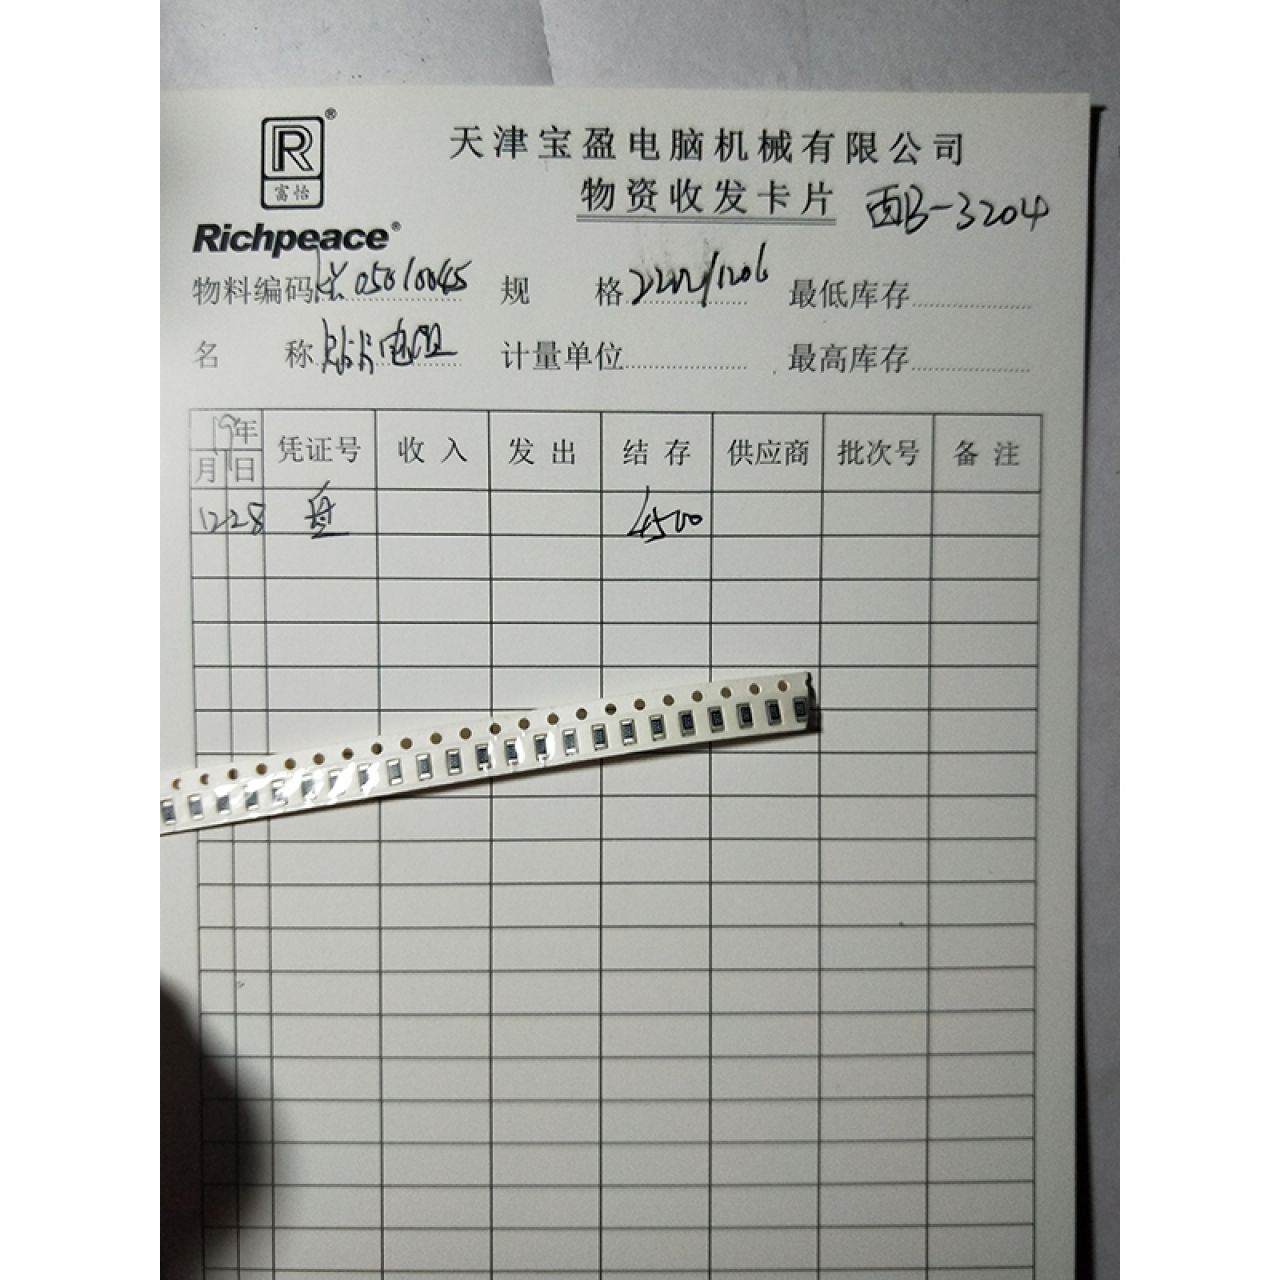 R®
富怡
Richpeace®
天津宝盈电脑机械有限公司
物资收发卡片 西B-3204
物料编码 05010045 规格 /1206 最低库存
名称 贴片电阻 计量单位 最高库存
19年 凭证号 收入 发出 结存 供应商 批次号 备注
月 日
12 28 盘 4500